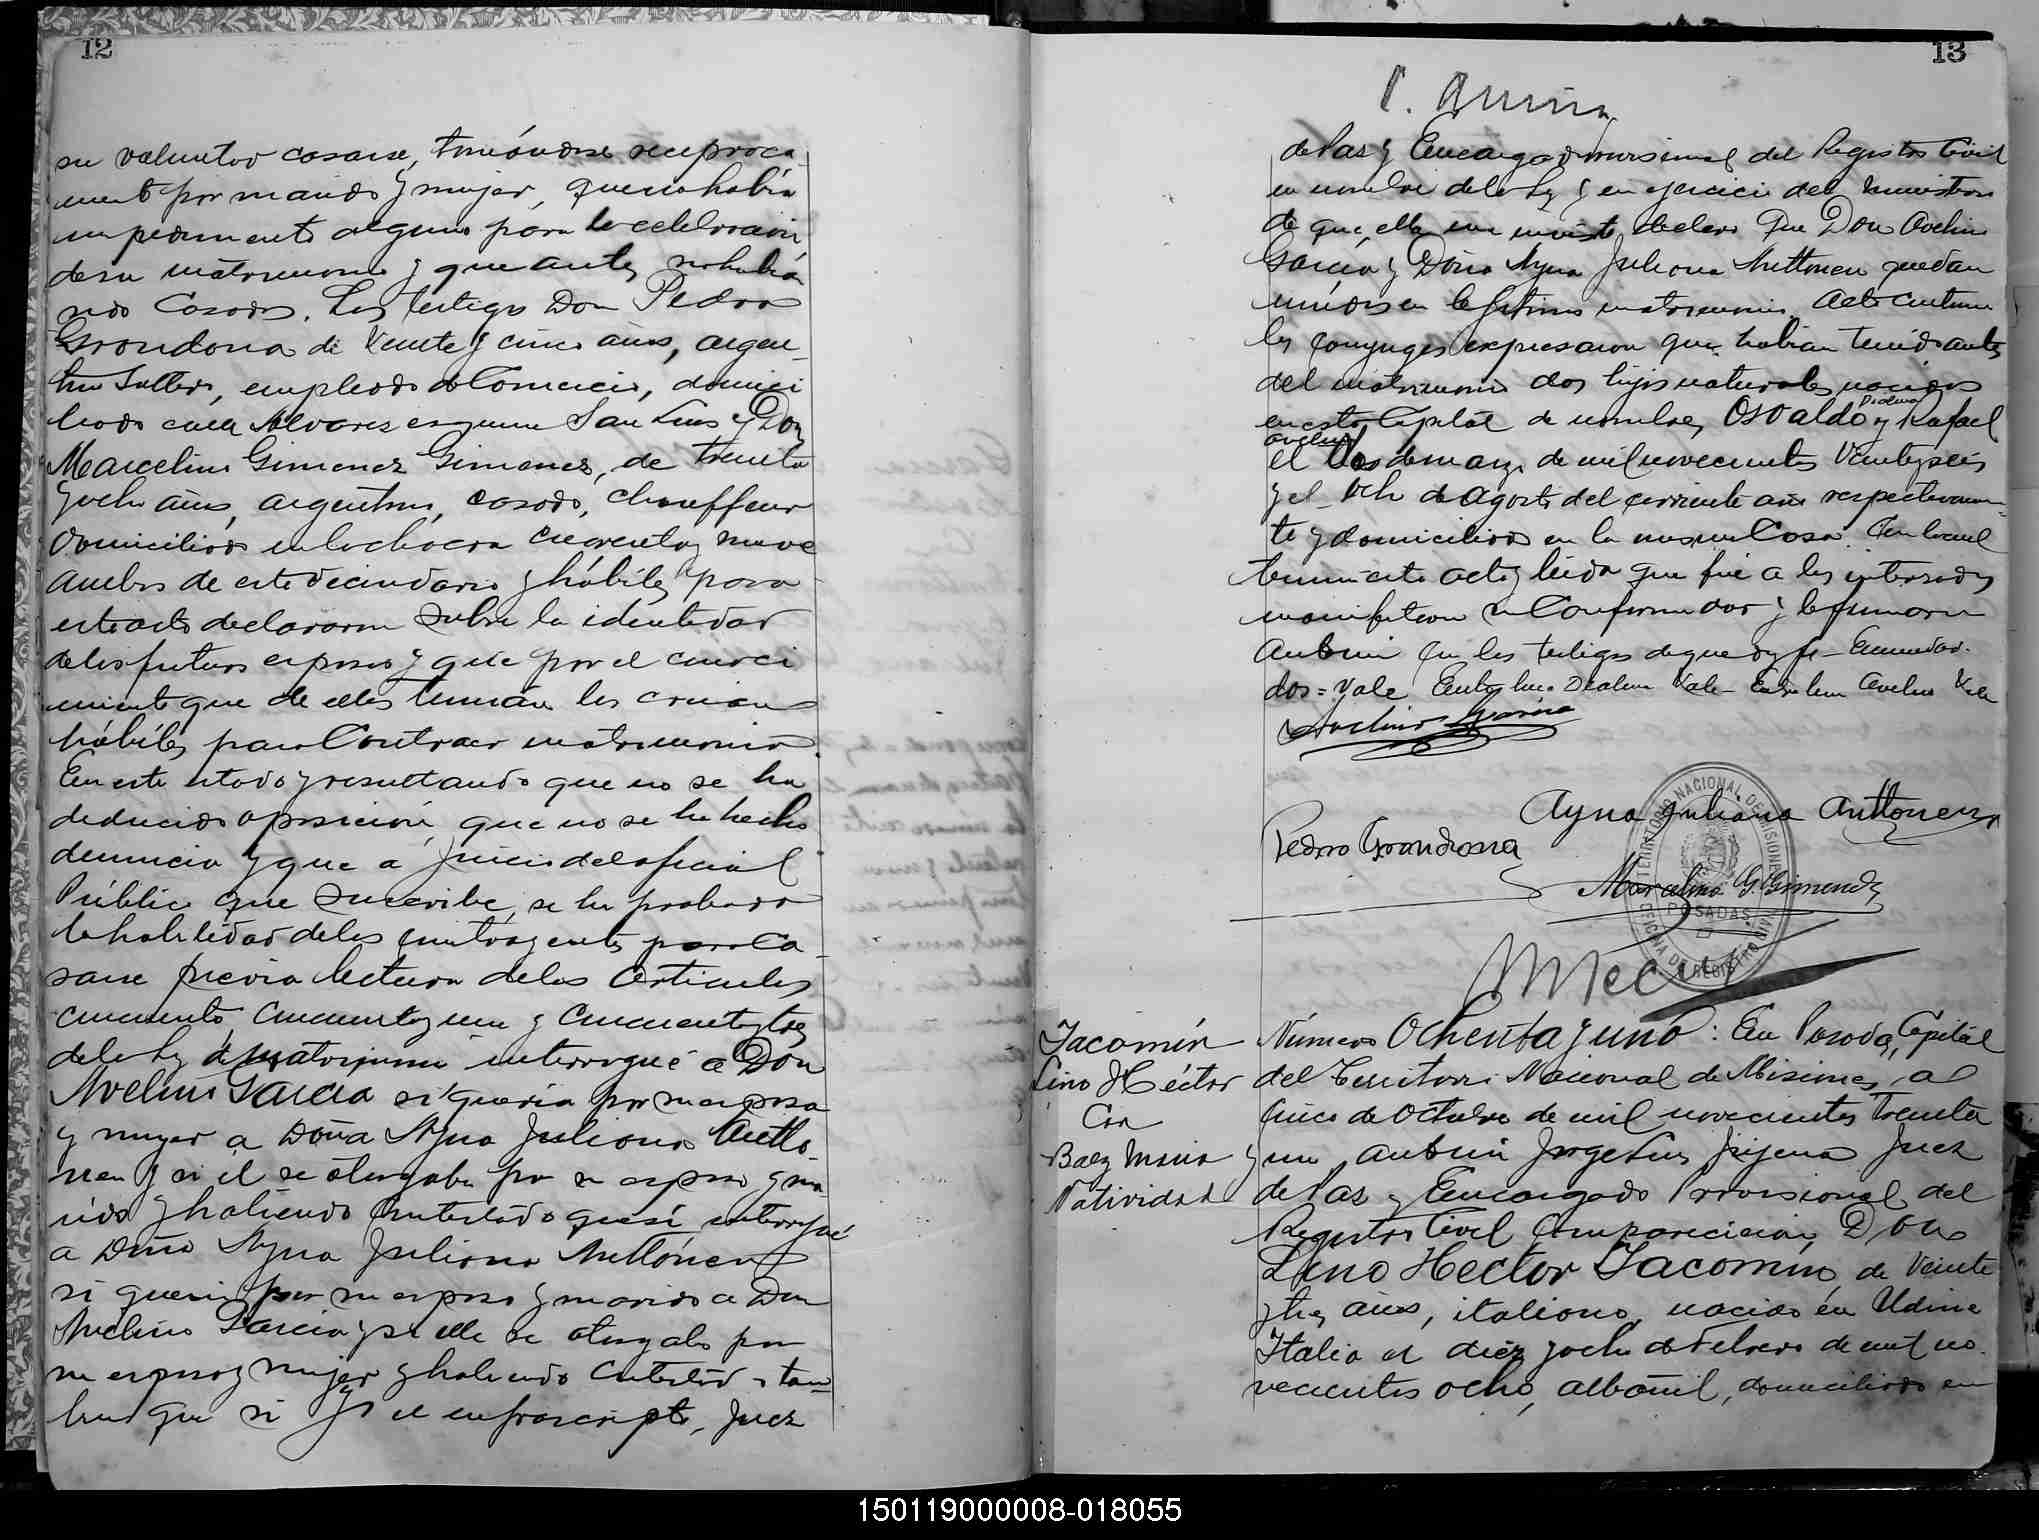 12
su voluntad casarse, tomándose recíproca
mente por marido y mujer, que no había
impedimento alguno para la celebración
de su matrimonio y que antes no habían
sido casados. Los testigos Don Pedro
Grondona de veinte y cinco años, argen
tino soltero, empleado de Comercio, domici
liado calle Alvarez esquina San Luis y Don
Marcelino Gimenez Gimenez, de treinta
y ocho años, argentino, casado, chauffeur
domiciliado en la chacra cuarenta y nueve
ambos de este vecindario y hábiles para
este acto declararon sobre la identidad
de los futuros esposos y que por el conoci
miento que de ellos tenían los creían
hábiles para Contraer matrimonio.
En este estado y resultando que no se ha
deducido oposición, que no se ha hecho
denuncia y que a juicio del oficial
Público que suscribe, se ha probado
la habilidad de los contrayentes para Ca
sarse previa lectura de los artículos
cincuenta, cincuenta y uno y cincuenta y tres
de la ley de matrimonio interrogué a Don
Avelino Garcia si quería por su esposa
y mujer a Doña Ayna Juliana Antto
nen y si él se otorgaba por su esposo y ma
rido y habiendo contestado que sí interrogué
a Doña Ayna Juliana Anttónen
si quería por su esposo y marido a Don
Avelino Garcia y si ella se otorgaba por
su esposa y mujer y habiendo contestado tam
bien que si Yo el infrascripto, Juez
13
de Paz y Encargado provisional del Registro Civil
en nombre de la ley y en ejercicio del ministerio
de que ella me inviste declaro Que Don Avelino
Garcia y Doña Ayna Juliana Anttonen quedan
unidos en legítimo matrimonio. Acto continuo
los conyuges expresaron que habian tenido antes
del matrimonio dos hijos naturales nacidos
en esta Capital de nombres Osvaldo Dealmo y Rafael
Avelino
el dos de marzo de mil novecientos veinte y seis
y el ocho de agosto del corriente año respectivamen
te y domiciliados en la misma Casa. Con lo cual
terminó este acto y leída que fué a los interesados
manifestaron su Conformidad y la firmaron
ante mi con los testigos de que doy fe - Enmenda
dos = Vale Entre linea Vale - Entre linea Avelino Vale
Avelino Garcia
Ayna Juliana Anttonen
Pedro Grondona
Marcelino G. Gimenez
TERRITORIO NACIONAL DE MISIONES
POSADAS
OFICINA DE REGISTRO CIVIL
Iacomín
Lino Héctor
Con
Baez Maria
Natividad
Número Ochenta y uno: En Posadas, Capital
del Territorio Nacional de Misiones, a
cinco de Octubre de mil novecientos treinta
y uno ante mi Jorge Luis Juez
de Paz y Encargado Provisional del
Registro Civil comparecieron, Don
Lino Hector Iacomin, de veinte
y tres años, italiano, nacido en Udine
Italia el diez y ocho de Febrero de mil no
vecientos ocho, albañil, domiciliado en
150119000008-018055